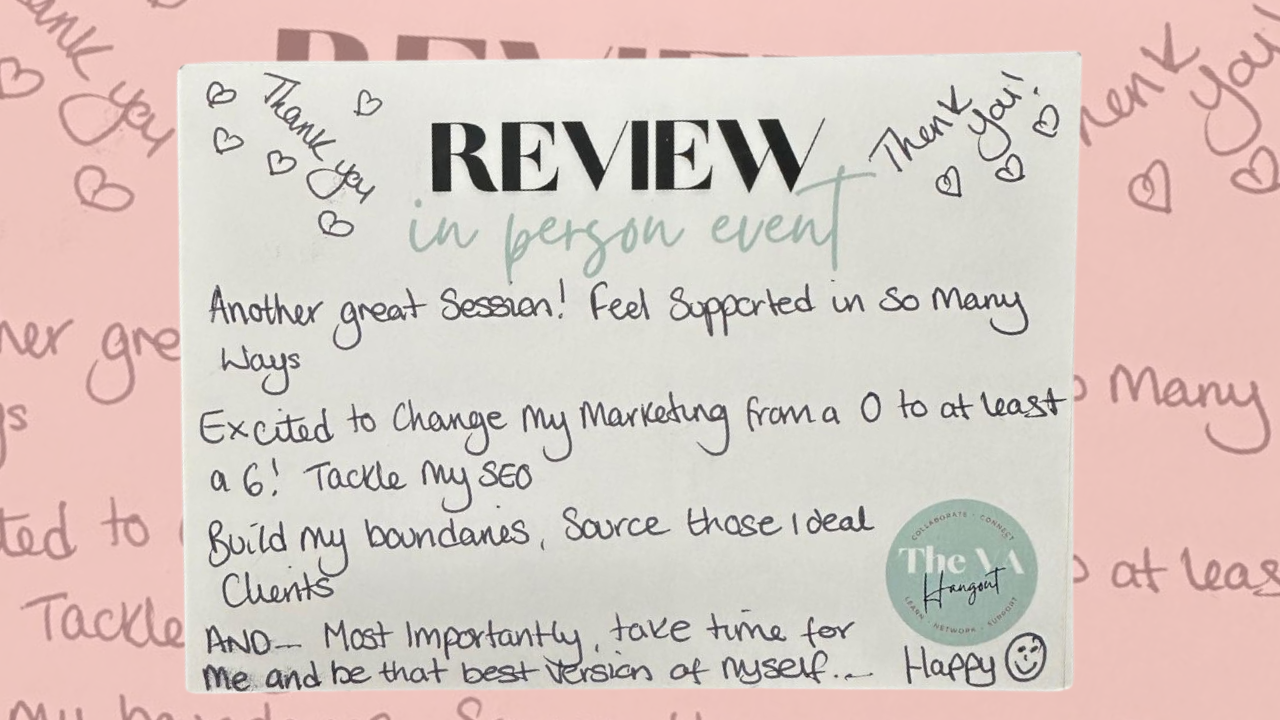 Thank you
Thank you!
REVIEW
in person event
Another great Session! Feel Supported in so Many
Ways
Excited to Change My Marketing from a 0 to at least
a 6! Tackle My SEO
Build my boundaries, Source those Ideal
Clients
AND... Most Importantly, take time for
Me and be that best version of Myself...
COLLABORATE · CONNECT
The VA
Hangout
LEARN · NETWORK · SUPPORT
Happy